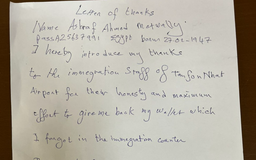 Letter of thanks
Name Ashraf Ahmed Metwally.
Pass A25617991 Egypt born 27-01-1947
I hereby introduce my thanks
to the immigration Staff of Tan Son Nhat
Airport for their honesty and maximum
effort to give me back my wallet which
I forgot in the Immigration counter